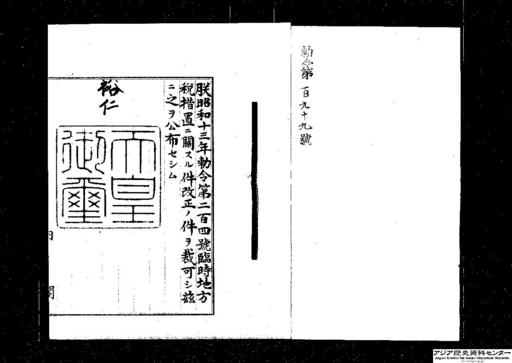 勅令第百九十九號
朕昭和十三年勅令第二百四號臨時地方
税措置ニ關スル件改正ノ件ヲ裁可シ茲
ニ之ヲ公布セシム
裕仁
天皇
御璽
内閣
アジア歴史資料センター
Japan Center for Asian Historical Records